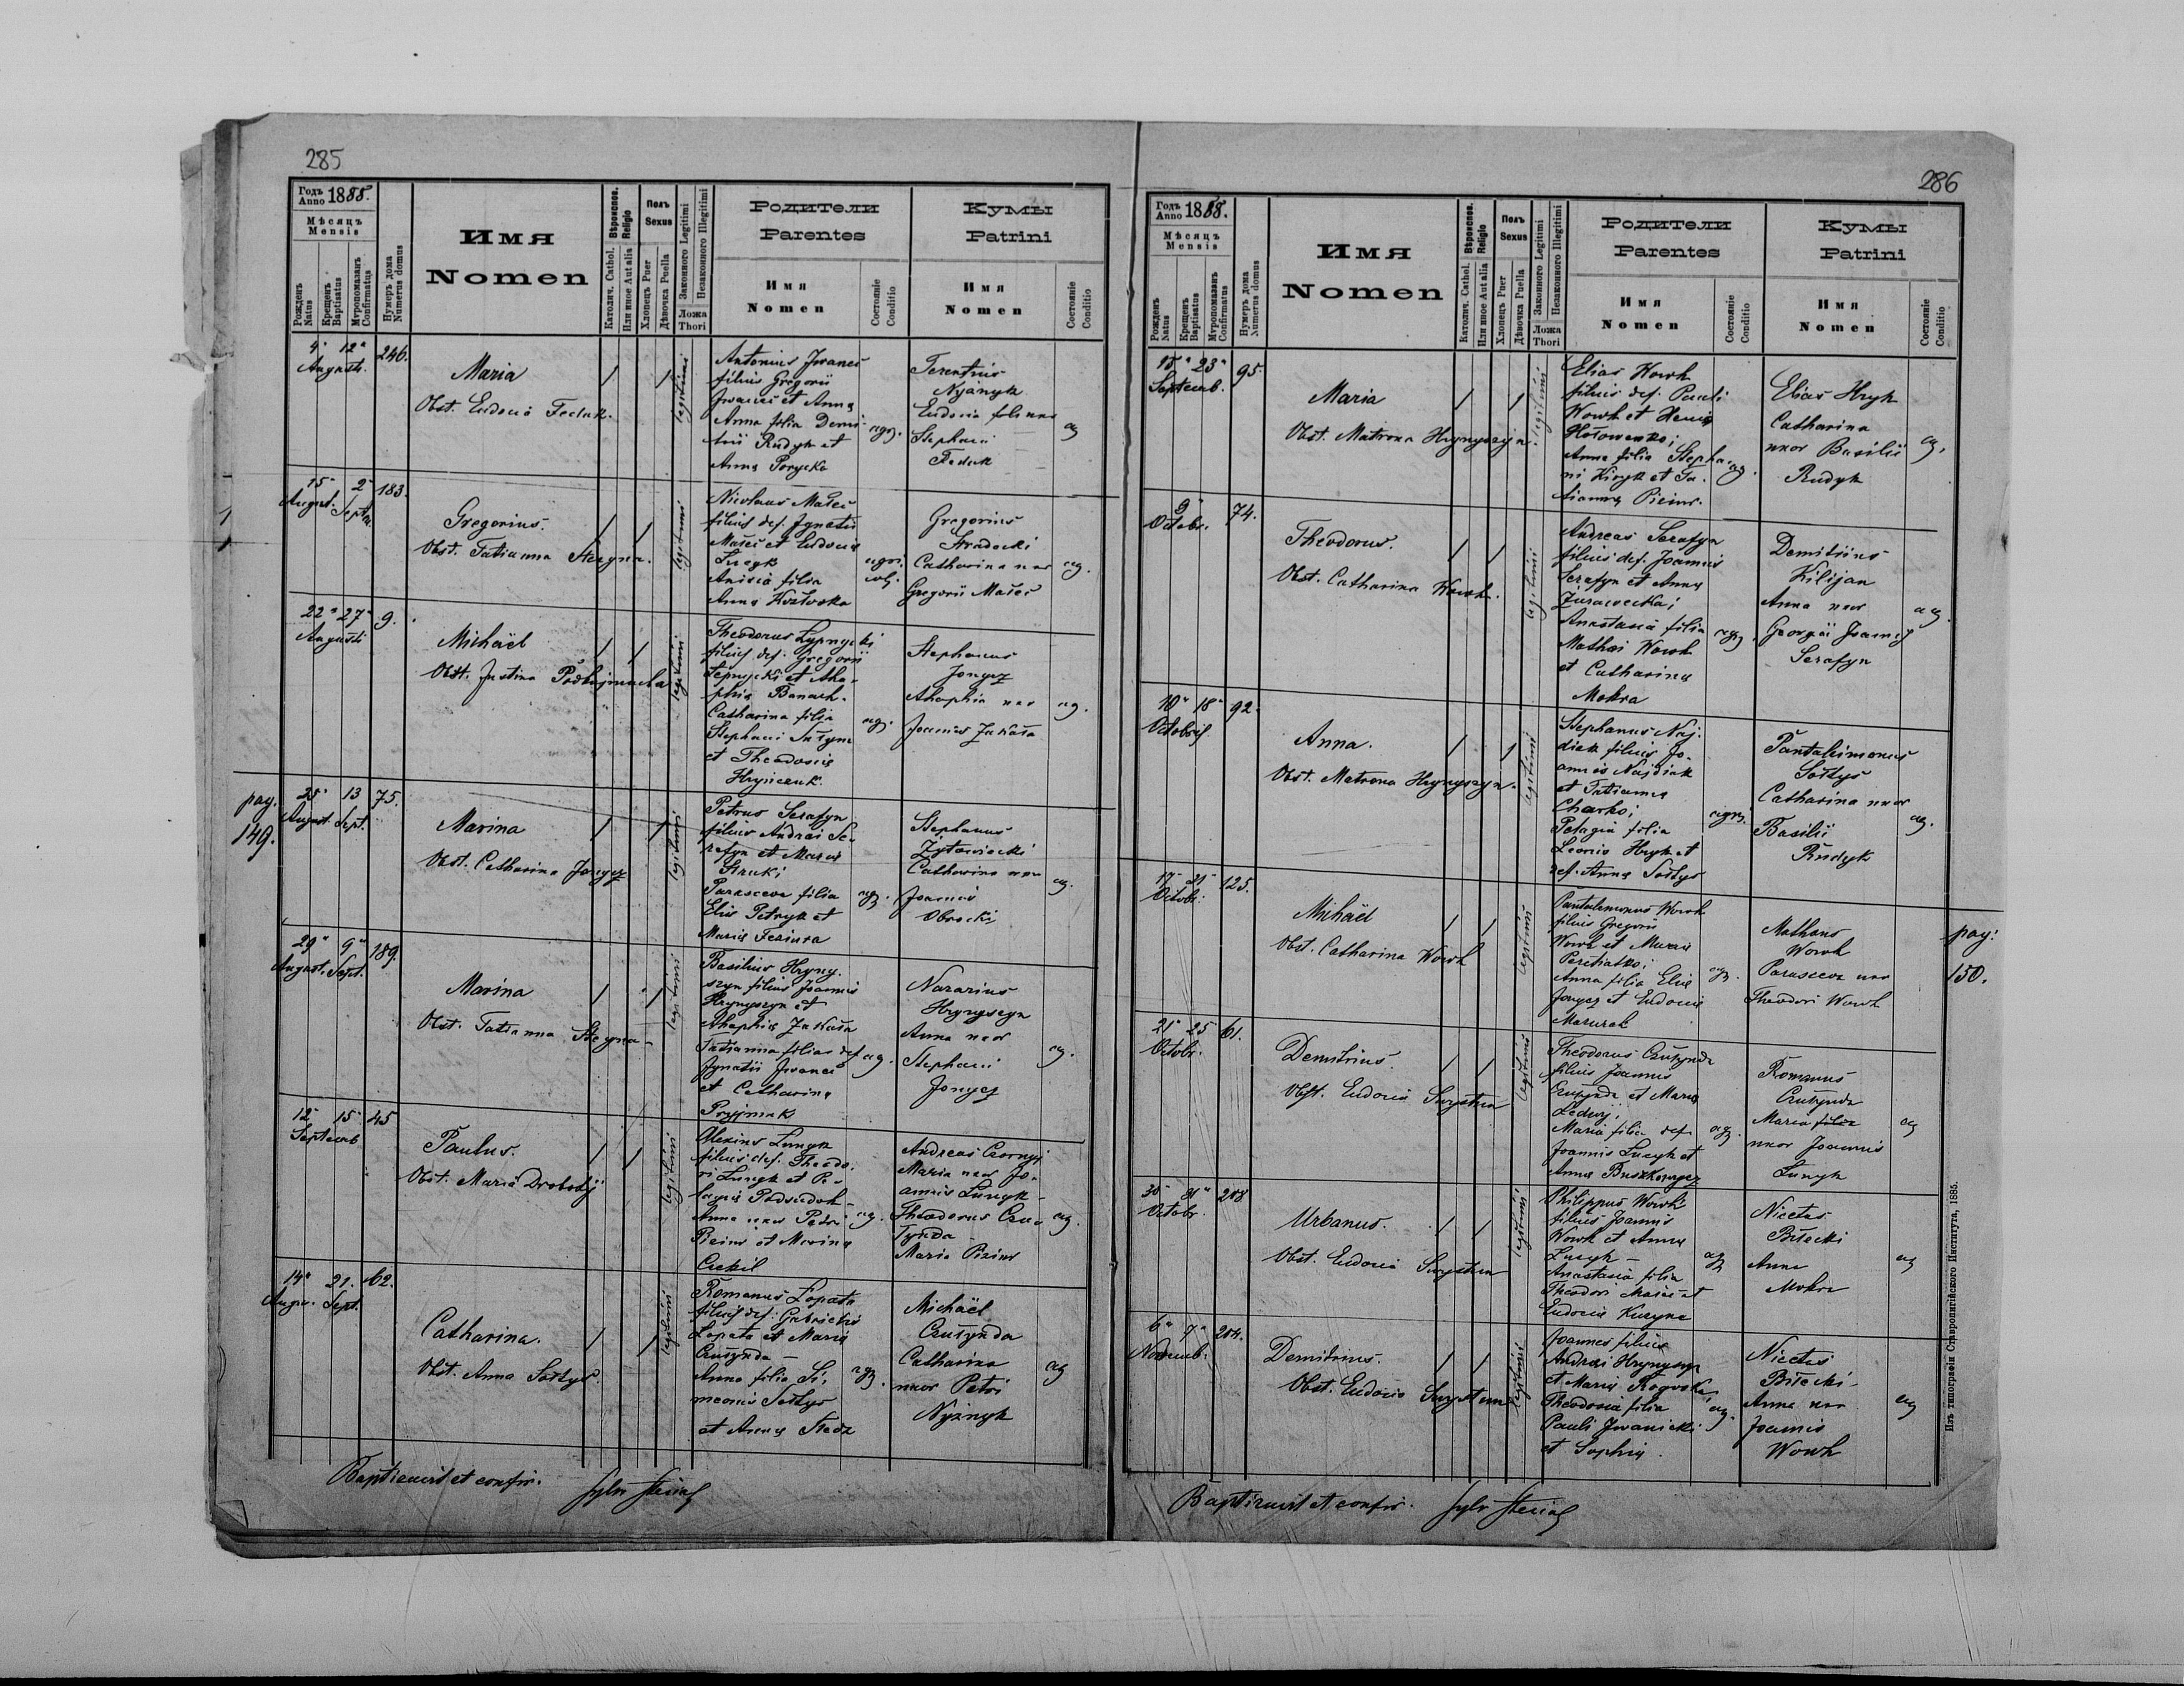 285
Годъ Anno 1888.
Мѣсяцъ
Mensis
Рожденъ Natus
Крещенъ Baptisatus
Мѵропомазанъ Confirmatus
Нумеръ дома Numerus domus
Имя
Nomen
Вѣроисповѣд. Religio
Католич. Cathol.
Или иное Aut alia
Полъ
Sexus
Хлопецъ Puer
Дѣвочка Puella
Законного Legitimi
Незаконного Illegitimi
Ложа
Thori
Родители
Parentes
Имя
Nomen
Состояніе
Conditio
Кумы
Patrini
Имя
Nomen
Состояніе
Conditio
4" 12" 246.
Augusti.
Maria
Obst. Eudocia Feduk.
legitimi
Antonius Iwaneć
filius Gregorii
Iwaneć et Anna
Anna filia Demi-
trii Rudyk et
Anna
agr.
Terentius
Nyżnyk
Eudocia
Stephani
Feduk
ag
15" 2" 183.
August. Septem.
Gregorius.
Obst. Tatianna Stegna.
legitimi
Nicolaus Maśeć
filius def. Ignatii
Maśeć et Eudocia
Łucyk
Anisia filia
Anna Kozłoska
agri.
Gregorius
Hradecki
Catharina uxor
Gregorii Maśeć
ag.
22" 27" 9.
Augusti
Michaël
Obst. Justina
legitimi
Theodorus Łypnycki
filius def. Gregorii
Łepnycki et Aha-
phia Banach.
Catharina filia
Stephani
et Theodosia
Hryńczuk.
agr.
Stephanus
Jonycz
Ahaphia uxor
Joannis
ag.
pag. 149.
25" 13 75.
August Sept.
Marina
Obst. Catharina Jonycz
legitimi
Petrus Serafyn
filius Andrei Se-
rafyn et Maria
Struki
Parasceva filia
Eliae Petryk et
Maria
ag.
Stephanus
Żytowiecki
Catharina uxor
Joannis
Obrocki
ag.
29" 9" 189.
August. Sept.
Marina
Obst. Tatianna Stegna
legitimi
Basilius Hryny-
szyn filius Joannis
Hrynyszyn et
Ahaphia
Tatianna filia def
Ignatii Iwaneć
et Catharina
Pryjmak
ag.
Nazarius
Hrynyszyn
Anna uxor
Stephani
Jonycz
ag.
12" 15" 45
Septemb
Paulus.
Obst. Maria Drobotij
legitimi
Alexius Lunyk
filius def. Theodo-
ri Lunyk et Pe-
lagia
Anna uxor Petri
et Marina
ag.
Andreas Czornyj
Maria uxor Jo-
annis Lunyk
Theodorus Czu-
łynda
Maria
ag.
14" 21. 62.
Sept.
Catharina.
Obst. Anna Sołtys.
legitimi
Romanus Łopata
filius def. Gabrielis
Łopata et Maria
Czułynda
Anna filia Si-
meonis Sołtys
et Anna
agr.
Michaël
Czułynda
Catharina
uxor Petri
Nyżnyk
ag
Baptisavit et confir.
286
Годъ Anno 1888.
Мѣсяцъ
Mensis
Рожденъ Natus
Крещенъ Baptisatus
Мѵропомазанъ Confirmatus
Нумеръ дома Numerus domus
Имя
Nomen
Вѣроисповѣд. Religio
Католич. Cathol.
Или иное Aut alia
Полъ
Sexus
Хлопецъ Puer
Дѣвочка Puella
Законного Legitimi
Незаконного Illegitimi
Ложа
Thori
Родители
Parentes
Имя
Nomen
Состояніе
Conditio
Кумы
Patrini
Имя
Nomen
Состояніе
Conditio
18" 23" 95.
Septemb.
Maria
Obst. Matrona Hrynyszyn.
legitimi
Elias Wowk
filius def. Pauli
Wowk et
Anna filia Stepha-
ni Kiryk et Ta-
tianna
ag.
Elias Hryk
Catharina
uxor Basilii
Rudyk
ag.
9" 74.
Octobr.
Theodorus.
Obst. Catharina Wowk.
legitimi
Andreas Serafyn
filius def. Joannis
Serafyn et Anna
Żurawecka;
Anastasia filia
Mathei Wowk
et Catharina
Mokra
agr.
Demitrius
Kilijan
Anna uxor
Georgii
Serafyn
ag.
10" 18" 92.
Octobris
Anna.
Obst. Matrona Hrynyszyn.
legitimi
Stephanus Naj-
diak filius Jo-
annis Najdiak
et Tatianna
Charko;
Pelagia filia
Leonis Hryk et
def. Anna Sołtys
agr.
Pantaleimonus
Sołtys
Catharina uxor
Basilii
Rudyk
ag.
pag: 150.
17" 21" 125.
Octobr.
Michäel
Obst. Catharina Wowk
legitimi
Pantalemonus Wowk
filius Gregorii
Wowk et Maria
Peretiatko;
Anna filia Eliae
Jonycz et Eudocia
Mazurak
ag.
Matheus
Wowk
Parasceva uxor
Theodori Wowk
21" 25 61.
Octobr.
Demitrius.
Obst. Eudocia
legitimi
Theodorus Czułynda
filius Joannis
Czułynda et Maria
Ledwij;
Maria filia def
Joannis Łucyk et
Anna
agr.
Romanus
Czułynda
Maria filia
uxor Joannis
Lunyk
ag
30" 31" 208
Octobr.
Urbanus.
Obst. Eudocia
legitimi
Philippus Wowk
filius Joannis
Wowk et Anna
Łucyk
Anastasia filia
Theodori Maśeć et
Eudocia
ag
Nicetas
Biłecki
Anna
Mokra
ag
6" 7" 204.
Novemb.
Demitrius.
Obst. Eudocia
legitimi
Joannes filius
Andrei Hrynyszyn
et Maria
Theodosia filia
Pauli Iwanicki
et Sophia.
ag.
Nicetas
Biłecki
Anna uxor
Joannis
Wowk
ag
Baptisavit et confir.
Изъ типографіи Ставропигійского Института, 1885.